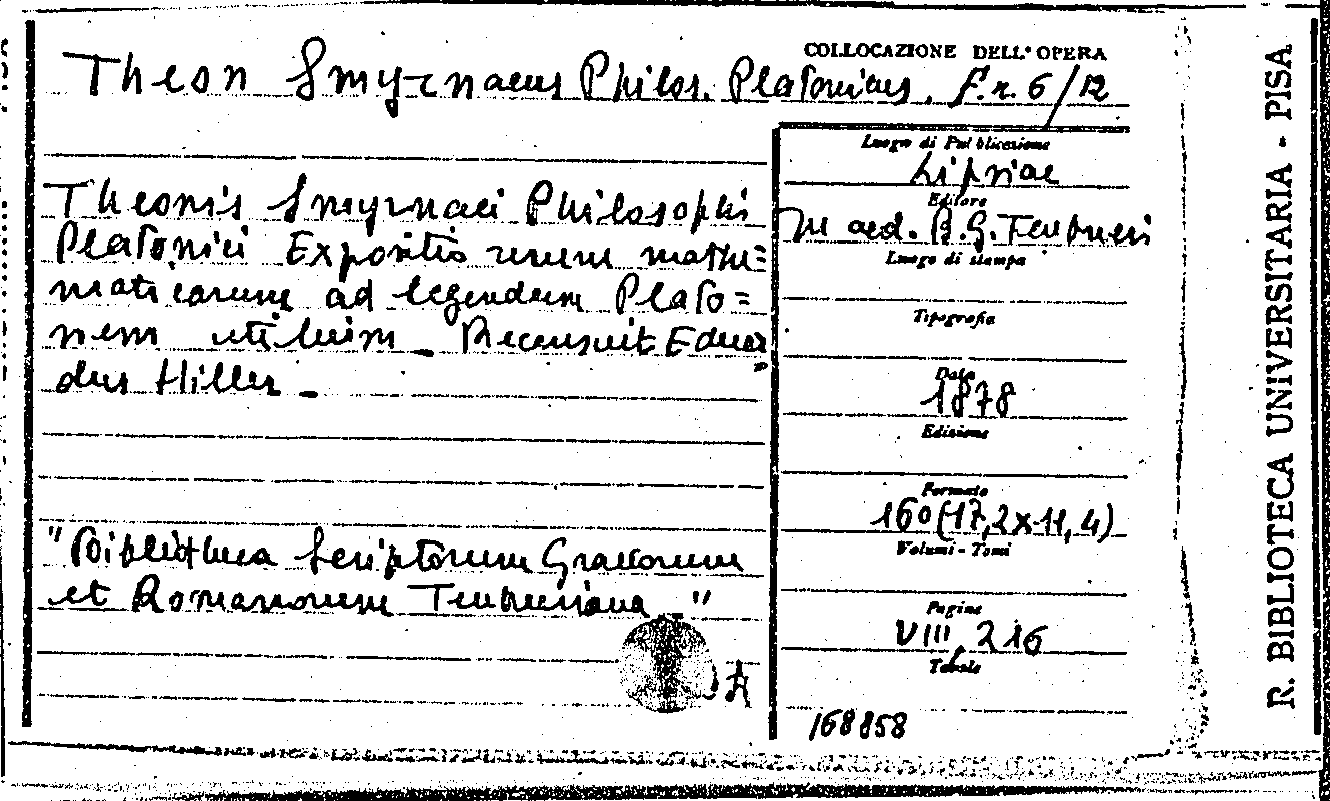 COLLOCAZIONE DELL'OPERA
Theon Smyrnaeus Philos. Platonicus. F.r. 6/12
Luogo di Pubblicazione
Lipsiae
Theonis Smyrnaei Philosophi
Editore
In aed. B.G. Teubneri
Platonici Expositio rerum mathe=
Luogo di stampa
maticarum ad legendum Plato=
Tipografia
nem utilium _ Recensuit Eduar
dus Hiller _
Data
1878
Edizione
Formato
16o(17,2x11,4)
"Bibliotheca Scriptorum Graecorum
Volumi - Tomi
et Romanorum Teubneriana _"
Pagine
VIII, 216
Tavole
168858
R. BIBLIOTECA UNIVERSITARIA - PISA